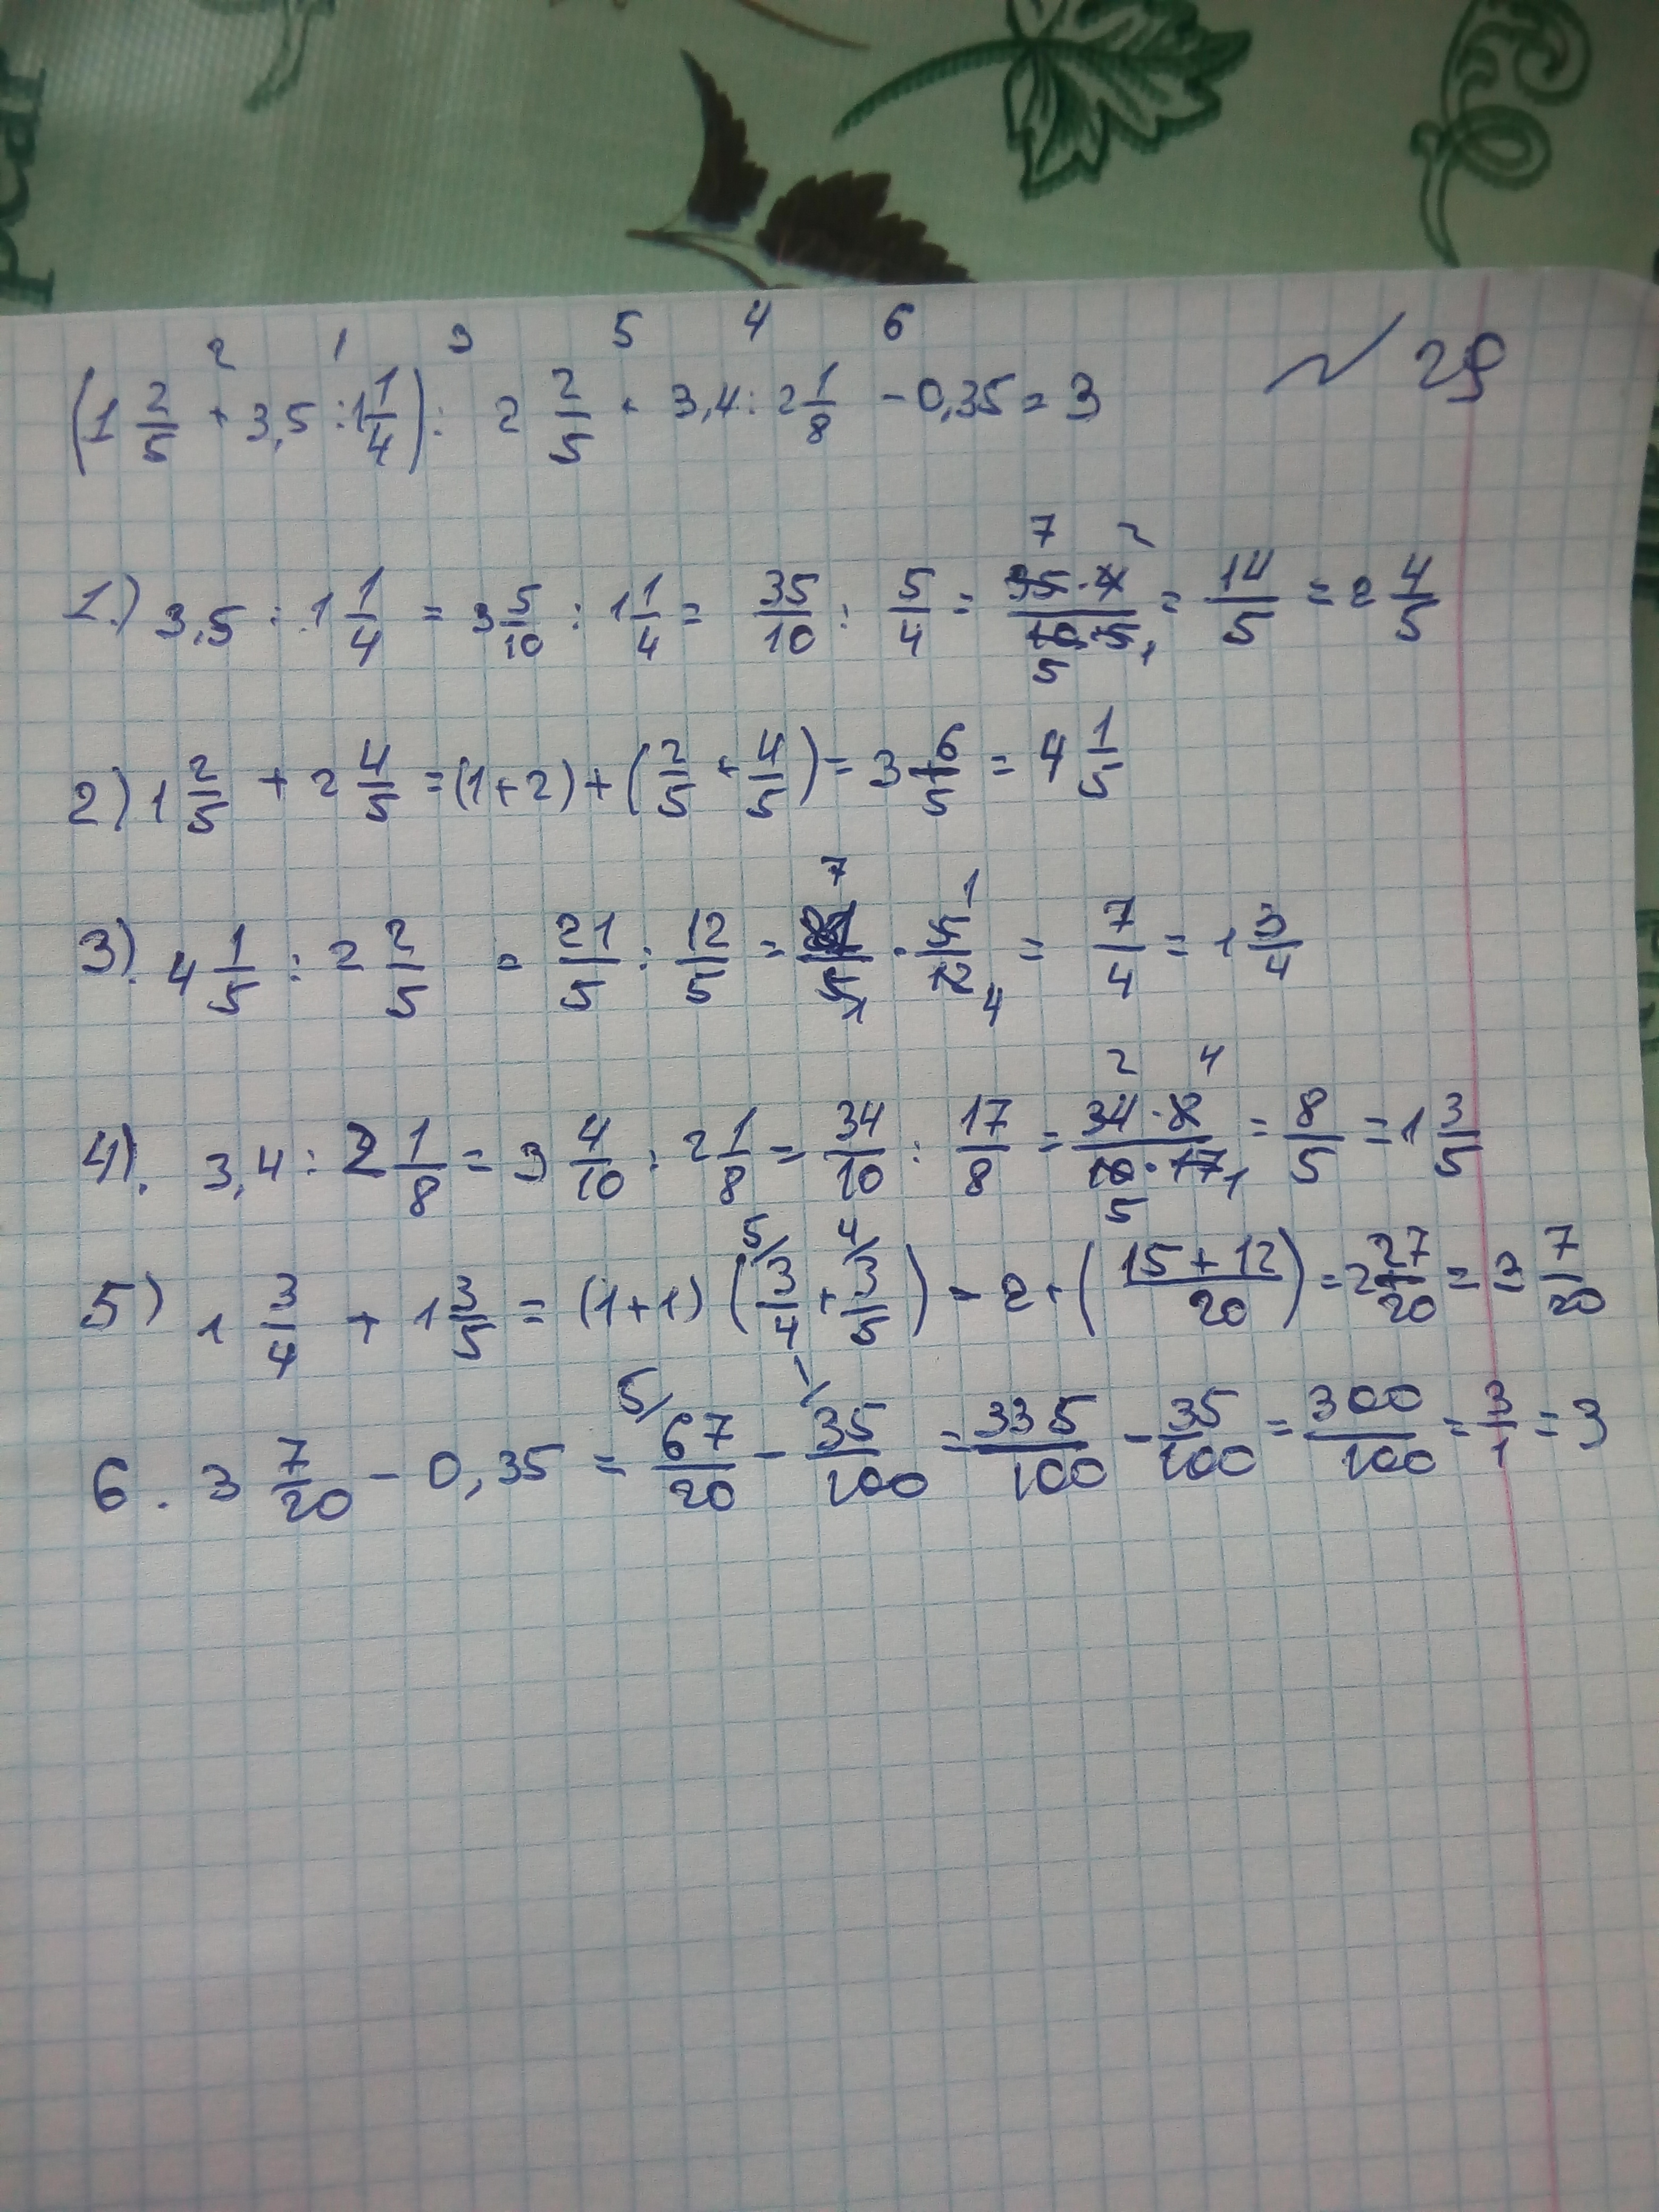 2 1 3 5 4 6
(1 2/5 + 3,5 : 1 1/4) : 2 2/5 + 3,4 : 2 1/8 - 0,35 = 3
№ 29
1.) 3,5 : 1 1/4 = 3 5/10 : 1 1/4 = 35/10 : 5/4 = 35·4/10·5 = 14/5 = 2 4/5
2) 1 2/5 + 2 4/5 = (1+2) + (2/5 + 4/5) = 3 6/5 = 4 1/5
3). 4 1/5 : 2 2/5 = 21/5 : 12/5 = 21/5 · 5/12 = 7/4 = 1 3/4
4). 3,4 : 2 1/8 = 3 4/10 : 2 1/8 = 34/10 : 17/8 = 34·8/10·17 = 8/5 = 1 3/5
5) 1 3/4 + 1 3/5 = (1+1) (3/4 + 3/5) = 2 + (15+12/20) = 2 27/20 = 3 7/20
6. 3 7/20 - 0,35 = 67/20 - 35/100 = 335/100 - 35/100 = 300/100 = 3/1 = 3